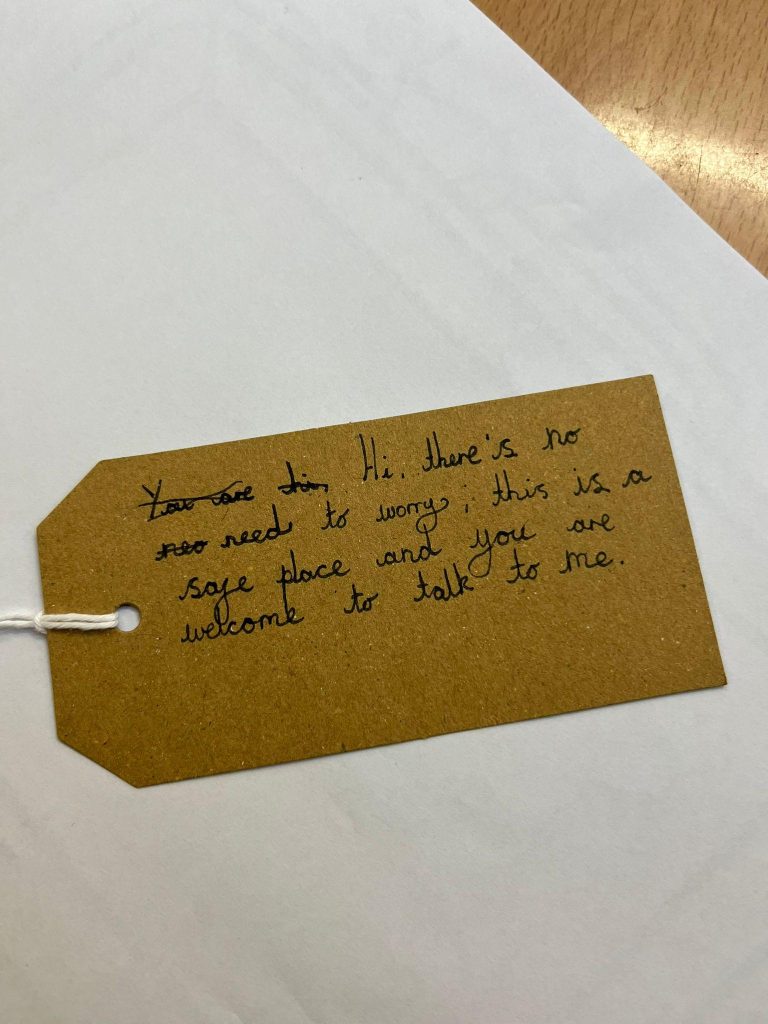 You are hi, Hi, there's no
neo need to worry; this is a
safe place and you are
welcome to talk to me.